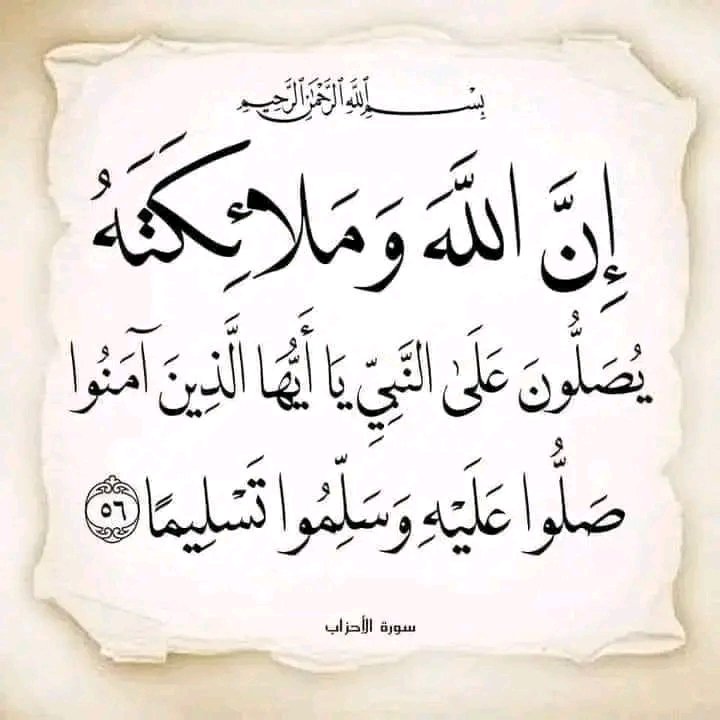 بِسْمِ ٱللَّهِ ٱلرَّحْمَٰنِ ٱلرَّحِيمِ
إِنَّ اللَّهَ وَمَلَائِكَتَهُ
يُصَلُّونَ عَلَىٰ النَّبِيِّ يَا أَيُّهَا الَّذِينَ آمَنُوا
صَلُّوا عَلَيْهِ وَسَلِّمُوا تَسْلِيمًا ٥٦
سورة الأحزاب